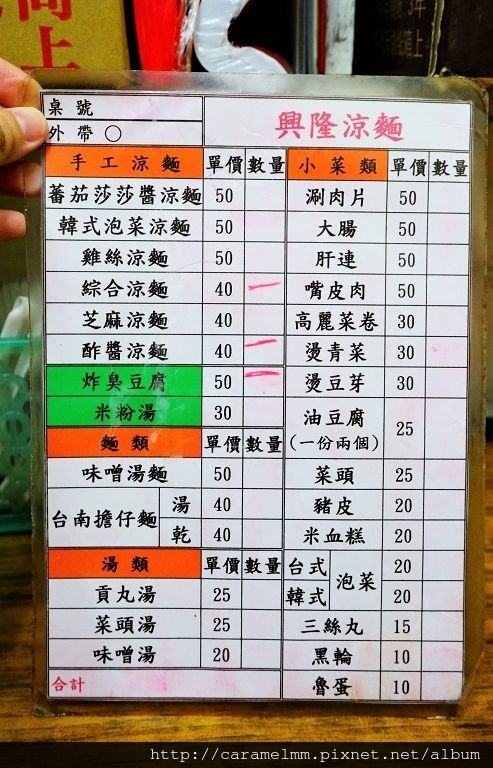 桌號
外帶○
興隆涼麵
手工涼麵 單價 數量
蕃茄莎莎醬涼麵 50
韓式泡菜涼麵 50
雞絲涼麵 50
綜合涼麵 40
芝麻涼麵 40
酢醬涼麵 40
炸臭豆腐 50
米粉湯 30
麵類 單價 數量
味噌湯麵 50
台南擔仔麵 湯 40
乾 40
湯類 單價 數量
貢丸湯 25
菜頭湯 25
味噌湯 20
合計
小菜類 單價 數量
涮肉片 50
大腸 50
肝連 50
嘴皮肉 50
高麗菜卷 30
燙青菜 30
燙豆芽 30
油豆腐 25
(一份兩個)
菜頭 25
豬皮 20
米血糕 20
台式 泡菜 20
韓式 20
三絲丸 15
黑輪 10
魯蛋 10
http://caramelmm.pixnet.net/album